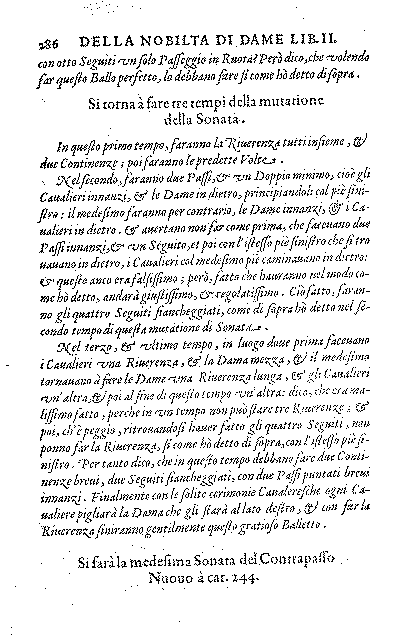 286 DELLA NOBILTA DI DAME LIB. II.
con otto Seguiti vn solo Passeggio in Ruota? Però dico, che volendo
far questo Ballo perfetto, lo debbano fare sì come hò detto di sopra.
Si torna à fare tre tempi della mutatione
della Sonata.
In questo primo tempo, faranno la Riuerenza tutti insieme, &
due Continenze; poi faranno le predette Volte.
Nel secondo, faranno due Passi, & vn Doppio minimo, cioè gli
Caualieri innanzi, & le Dame in dietro, principiandoli col piè sini-
stro: il medesimo faranno per contrario, le Dame innanzi, & i Ca-
ualieri in dietro. & auertano non far come prima, che faceuano due
Passi innanzi, & vn Seguito, et poi con l'istesso piè sinistro che si tro
uauano in dietro, i Caualieri col medesimo piè caminauano in dietro:
& questo anco era falsissimo; però, fatto che hauranno nel modo co-
me hò detto, andarà giustissimo, & regolatissimo. Ciò fatto, faran-
no gli quattro Seguiti fiancheggiati, come di sopra hò detto nel se-
condo tempo di questa mutatione di Sonata.
Nel terzo, & vltimo tempo, in luogo doue prima faceuano
i Caualieri vna Riuerenza, & la Dama mezza, & il medesimo
tornauano à fare le Dame vna Riuerenza lunga, & gli Caualieri
vn'altra, & poi al fine di questo tempo vn'altra: dico, che era ma-
lissimo fatto, perche in vn tempo non può stare tre Riuerenze; &
poi, ch'è peggio, ritrouandosi hauer fatto gli quattro Seguiti, non
ponno far la Riuerenza, sì come hò detto di sopra, con l'istesso piè si-
nistro. Per tanto dico, che in questo tempo debbano fare due Conti-
nenze breui, due Seguiti fiancheggiati, con due Passi puntati breui
innanzi. Finalmente con le solite cerimonie Canaleresche ogni Ca-
ualiere pigliarà la Dama che gli starà al lato destro, & con far la
Riuerenza finiranno gentilmente questo gratioso Balletto.
Si farà la medesima Sonata del Contrapasso
Nuouo à car. 244.